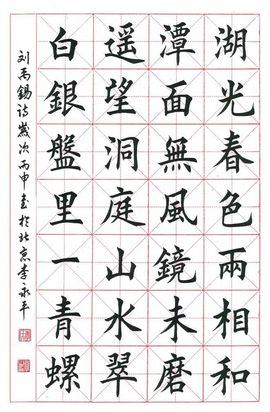 湖光春色兩相和
潭面無風鏡未磨
遥望洞庭山水翠
白銀盤里一青螺
刘禹錫詩歲次丙申書於北京李永平